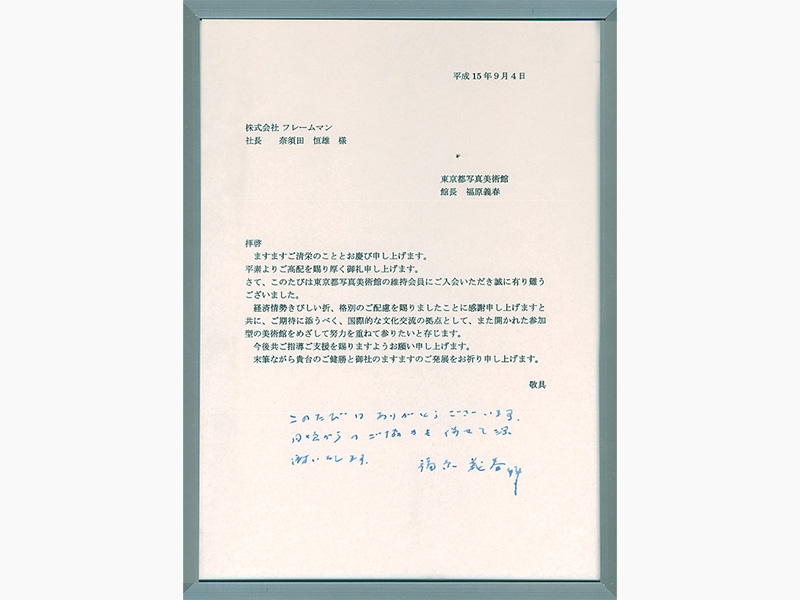 平成15年9月4日
株式会社 フレームマン
社長　奈須田　恒雄　様
東京都写真美術館
館長　福原義春
拝啓
ますますご清栄のこととお慶び申し上げます。
平素よりご高配を賜り厚く御礼申し上げます。
さて、このたびは東京都写真美術館の維持会員にご入会いただき誠に有り難う
ございました。
経済情勢きびしい折、格別のご配慮を賜りましたことに感謝申し上げますと
共に、ご期待に添うべく、国際的な文化交流の拠点として、また開かれた参加
型の美術館をめざして努力を重ねて参りたいと存じます。
今後共ご指導ご支援を賜りますようお願い申し上げます。
末筆ながら貴台のご健勝と御社のますますのご発展をお祈り申し上げます。
敬具
このたびは ありがとうございます.
日頃からのご協力も併せて深
謝いたします.　福原 義春